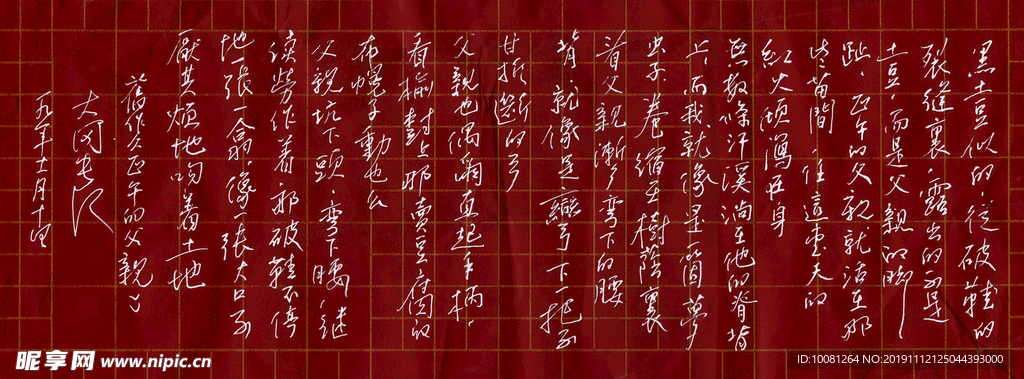 黑土豆似的，從破鞋的
裂縫裏，露出的不是
土豆，而是父親的腳
趾，正午的父親就活在那
些苗間，任這盛夏的
紅火傾瀉在身
無數條汗溪淌在他的脊背
上，而我就像是一箇夢
蟲子，卷縮在樹蔭裏
看父親漸漸彎下的腰
背，就像是 彎下一把不
甘折斷的弓
父親也偶爾直起手柄，
看 對上那賣豆腐的
布幌子動也不
父親 下頭，彎下腰，繼
續勞作着，那破鞋不停
地一張一翕，像一張大口不
厭其煩地吻着土地
舊作父正午的父親
大岡
九 年十一月十四
昵享网 www.nipic.cn
ID:10081264 NO:20191112125044393000